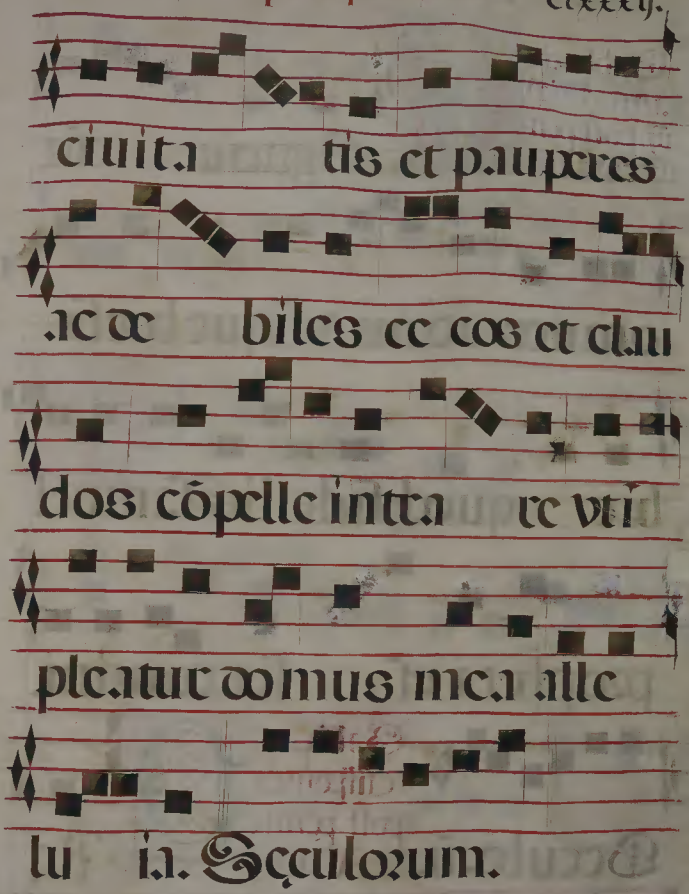 ciuita tis et pauperes
ac de biles ce cos et clau
dos cõpelle intra re vti
pleatur domus mea alle
lu ia. Sęculorum.